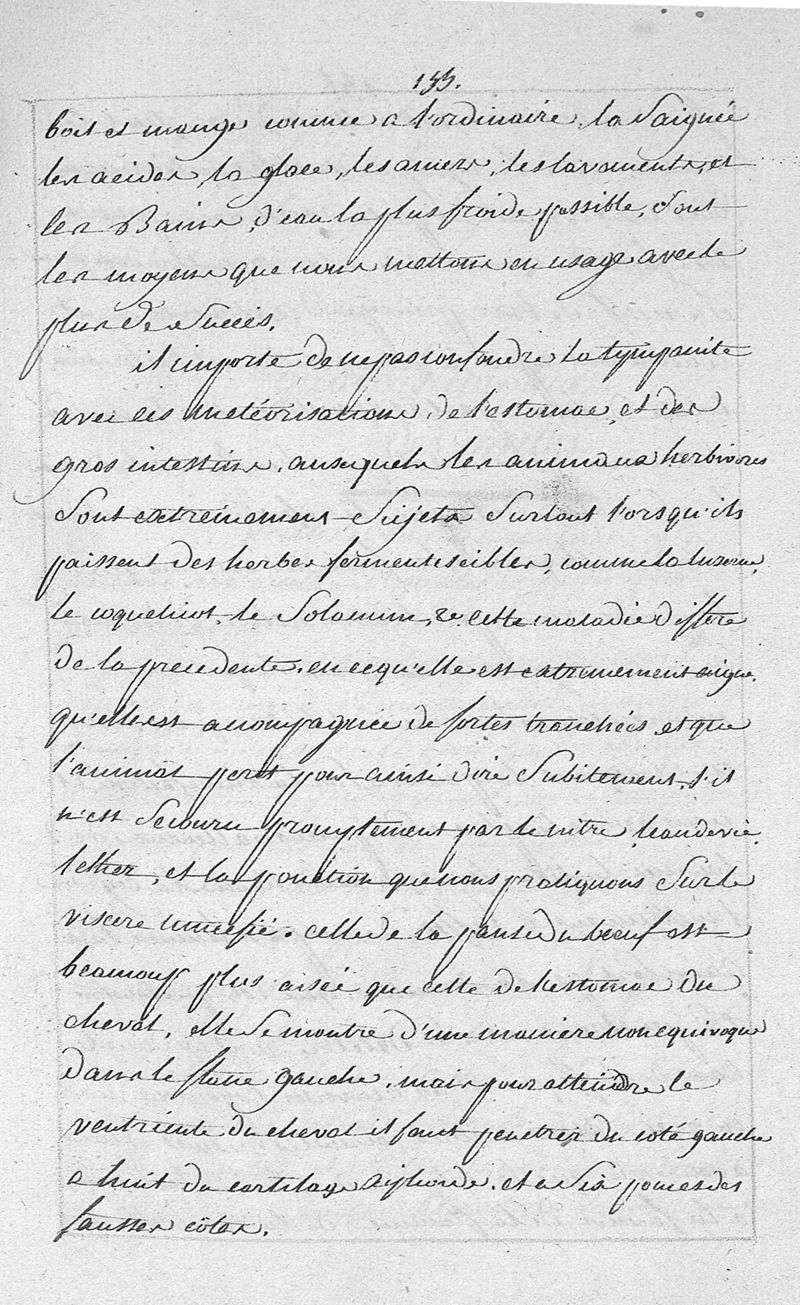 155.
boit et mange comme a l'ordinaire, la Saignée
les acides, la glace, les amers, les lavaments, et
les Bains, d'eau la plus froide possible, Sont
les moyens que nous mettons en usage avec le
plus de Succés.
il importe de ne pas confondre la tympanite
avec les météorisations, de l'estomac, et des
gros intestins, ausquels les animaux herbivores
Sont extremement Sujets Surtout lorsqu'ils
paissent des herbes fermentiscibles, comme la luzerne,
le coquelicot, le Solanum, &c cette maladie differe
de la precedente, en ce qu'elle est extremement aigue,
qu'elle est accompagnée de fortes tranchées, et que
l'animal perit pour ainsi dire Subitement, s'il
n'est Secouru promptement par le nitre, leau de vie,
lether, et la ponction que nous pratiquons Sur le
viscere tumefié. celle de la panse du boeuf est
beaucoup plus aisée que cette de lestomac du
cheval, elle Se montre d'une maniere non equivoque
dans le flanc gauche, mais pour attendre le
ventricule du cheval il faut penetrer du coté gauche
a huit du cartilage xiphoïde, et a Six pouces des
fausses côtes.